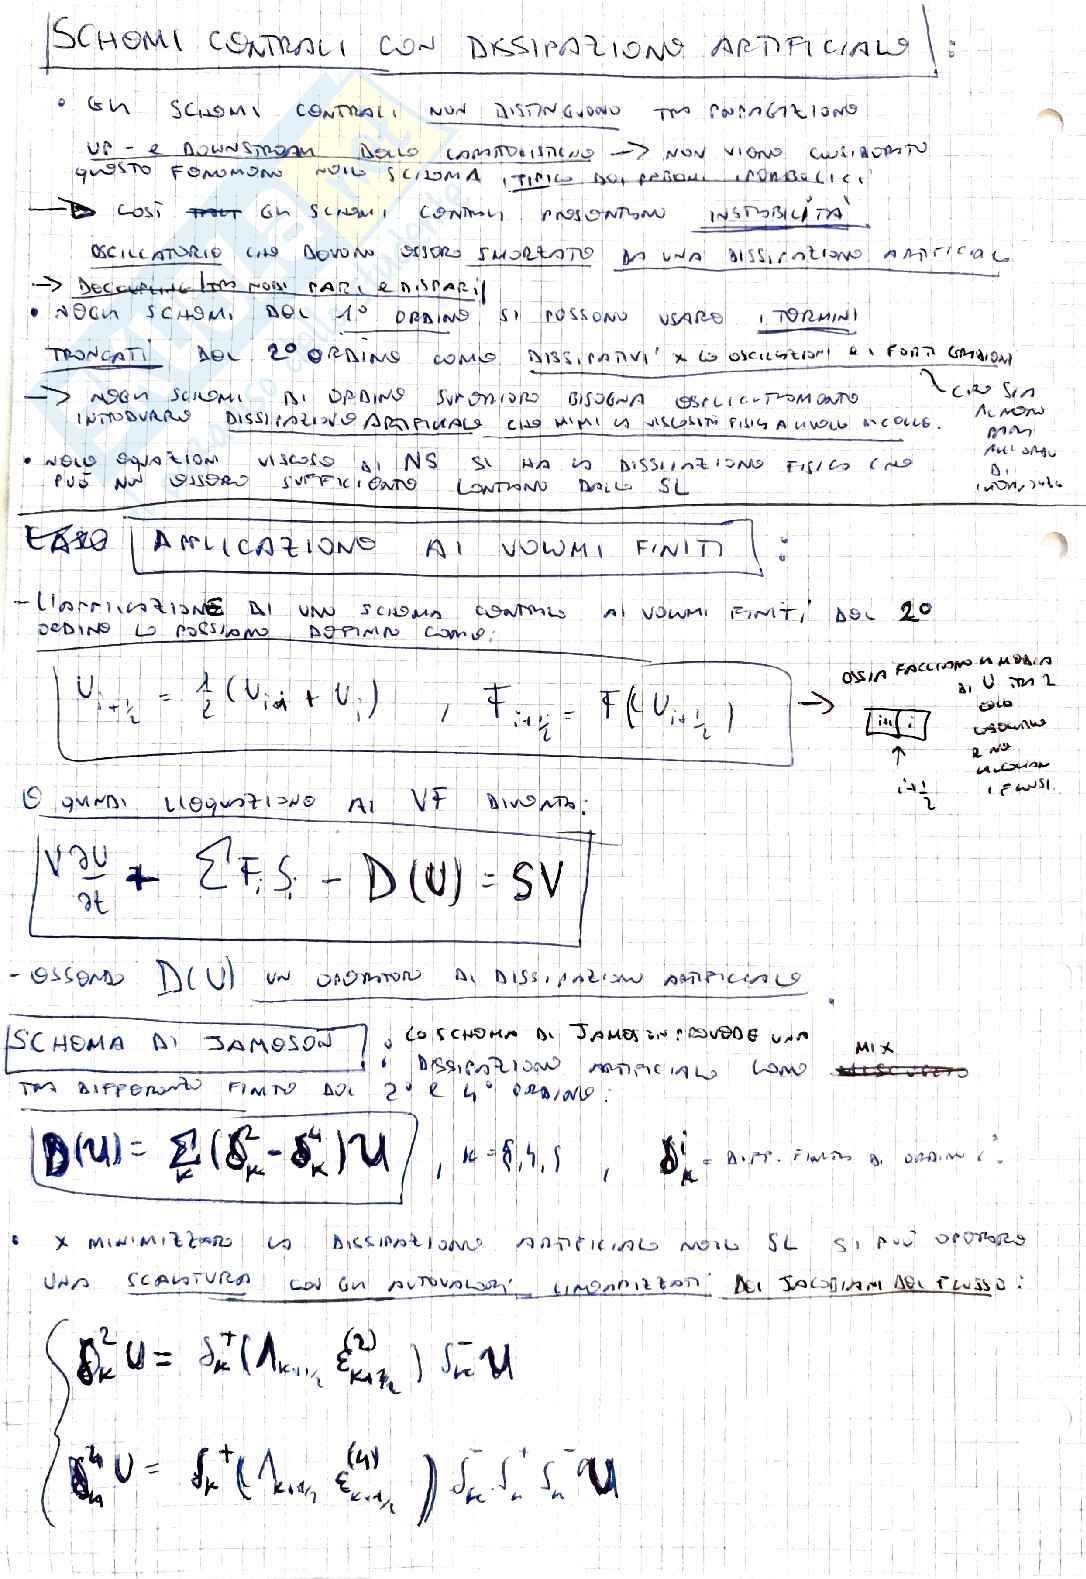 SCHEMI CENTRALI CON DISSIPAZIONE ARTIFICIALE :
• GLI SCHEMI CENTRALI NON DISTINGUONO TRA PROPAGAZIONE
UP - e DOWNSTREAM DELLE CARATTERISTICHE → NON VIENE CONSIDERATO
QUESTO FENOMENO NELLO SCHEMA, TIPICO DEI FENOMENI IPERBOLICI
→ COSÌ GLI SCHEMI CENTRALI PRESENTANO INSTABILITÀ
OSCILLATORIE CHE DEVONO ESSERE SMORZATE DA UNA DISSIPAZIONE ARTIFICIALE
→ DECOUPLING TRA NODI PARI E DISPARI
• NEGLI SCHEMI DEL 1° ORDINE SI POSSONO USARE I TERMINI
TRONCATI DEL 2° ORDINE COME DISSIPATIVI x LE OSCILLAZIONI E I FORTI GRADIENTI
→ NEGLI SCHEMI DI ORDINE SUPERIORE BISOGNA ESPLICITAMENTE
INTRODURRE DISSIPAZIONE ARTIFICIALE CHE MIMI LA VISCOSITÀ FISICA A LIVELLO MCELLE.
CHE SIA
ALMENO
PARI
ALL'ORDINE
DI
• NELLE EQUAZIONI VISCOSE DI NS SI HA LA DISSIPAZIONE FISICA CHE
PUÒ NON ESSERE SUFFICIENTE LONTANO DALLO SL
APPLICAZIONE AI VOLUMI FINITI :
- L'APPLICAZIONE DI UNO SCHEMA CENTRALE AI VOLUMI FINITI DEL 2°
ORDINE LO POSSIAMO DEFINIRE COME:
U_{i+1/2} = 1/2 (U_{i+1} + U_i) , F_{i+1/2} = F(U_{i+1/2}) →
OSSIA FACCIAMO LA MEDIA
DI U TRA 2
CELLE
E NO
I FLUSSI.
i+1 i
↑
i+1/2
E QUINDI L'EQUAZIONE AI VF DIVENTA:
V ∂U/∂t + Σ F_i S_i - D(U) = SV
- ESSENDO D(U) UN OPERATORE DI DISSIPAZIONE ARTIFICIALE.
SCHEMA DI JAMESON : LO SCHEMA DI JAMESON PREVEDE UNA
DISSIPAZIONE ARTIFICIALE COME MIX
TRA DIFFERENZE FINITE DEL 2° E 4° ORDINE:
D(U) = Σ_k (δ²_k - δ⁴_k) U , δ^i_k = DIFF. FINITE DI ORDINE i
• x MINIMIZZARE LA DISSIPAZIONE ARTIFICIALE NELLO SL SI PUÒ OPERARE
UNA SCALATURA CON GLI AUTOVALORI LINEARIZZATI DEI JACOBIANI DEL FLUSSO:
δ²_k U = δ⁺_k (Λ_{k+1/2} ε^{(2)}_{k+1/2}) δ⁻_k U
δ⁴_k U = δ⁺_k (Λ_{k+1/2} ε^{(4)}_{k+1/2}) δ⁻_k δ⁺_k δ⁻_k U